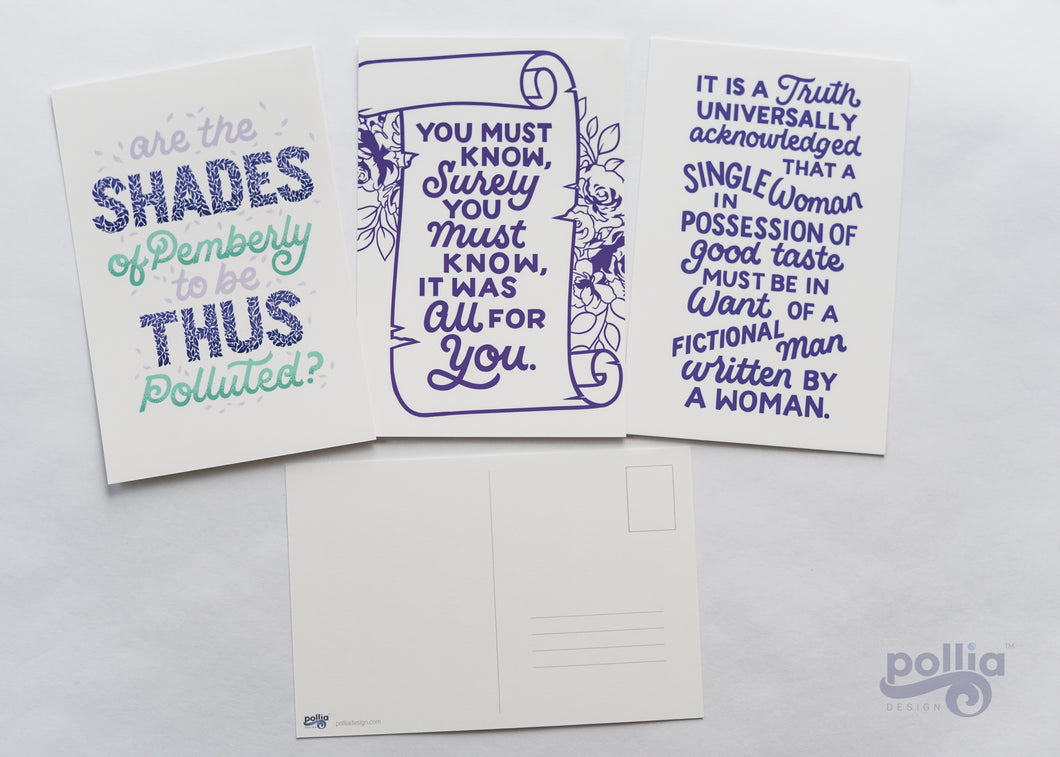 are the
SHADES
of Pemberly
to be
THUS
Polluted?
YOU MUST
KNOW,
Surely
YOU
Must
KNOW,
IT WAS
All FOR
You.
IT IS A Truth
UNIVERSALLY
acknowledged
THAT A
SINGLE Woman
IN
POSSESSION OF
good taste
MUST BE IN
Want OF A
FICTIONAL man
written BY
A WOMAN.
pollia
DESIGN
polliadesign.com
pollia™
DESIGN